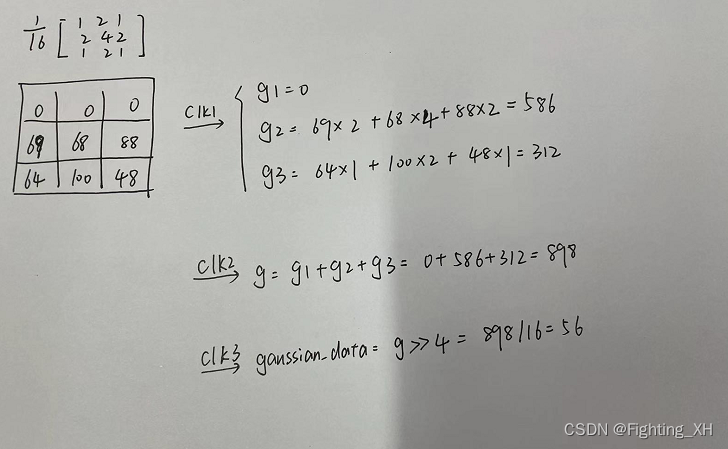 1/16 [ 1 2 1
2 4 2
1 2 1 ]
0 0 0
69 68 88
64 100 48
clk1
g1 = 0
g2 = 69×2 + 68×4 + 88×2 = 586
g3 = 64×1 + 100×2 + 48×1 = 312
clk2 g = g1 + g2 + g3 = 0 + 586 + 312 = 898
clk3 gaussian_data = g >> 4 = 898/16 = 56
CSDN @Fighting_XH